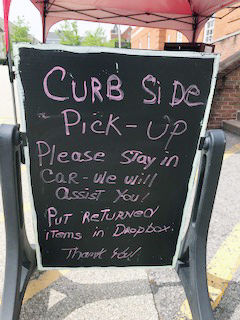 CURB SiDe
Pick-UP
Please stay in
CAR-We will
assist You!
PUT RETURNED
items in Dropbox.
Thank You!